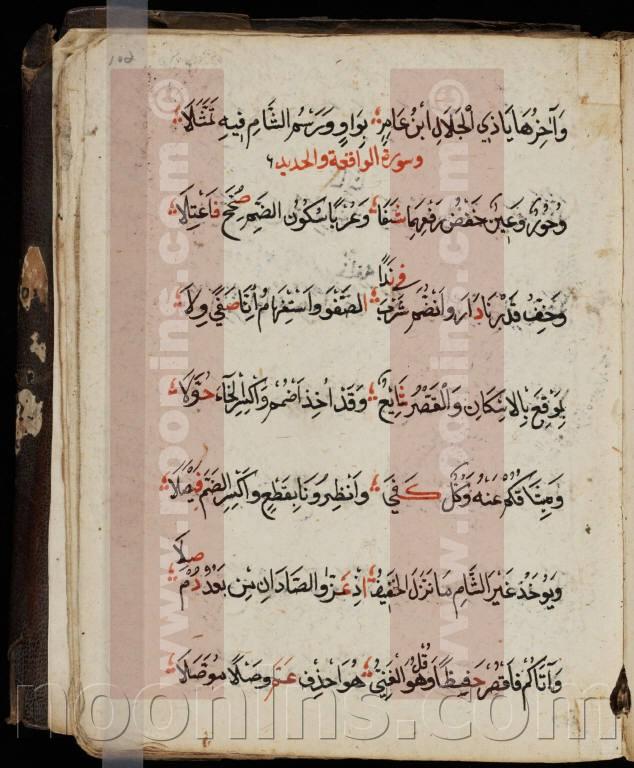 106
وَآخِرُهَا يَا ذِي الْجَلَالِ ابْنُ عَامِرٍ بِوَاوٍ وَرَسْمُ الشَّامِ فِيهِ تَمَثَّلَا
وسورة الواقعة والحديد
وَحُورٌ وَعِينٌ خَفْضُ رَفْعِهِمَا شَفَا وَعُرْبًا سُكُونُ الضَّمِّ صُحِّحَ فَاعْتَلَا
وَخِفُّ قَدَرْنَا دَارَ وَانْضَمَّ شُرْبَ فِي نَدَا الصَّفْوِ وَاسْتِفْهَامُ إِنَّا صَفَى وِلَا
بِمَوْقِعِ بِالِاسْكَانِ وَالْقَصْرِ شَايِعٌ وَقَدْ أُخِذَ اضْمُمْ وَاكْسِرِ الْخَاءَ حُوَّلَا
وَمِيثَاقُكُمْ عَنْهُ وَكُلٌّ كَفَى وَأَنْظِرُونَا بِقَطْعٍ وَاكْسِرِ الضَّمَّ فَيْصَلَا
وَيُوخَذُ غَيْرُ الشَّامِ مَا نَزَلَ الْخَفِيفُ إِذْ عَزَّ وَالصَّادَانِ مِنْ بَعْدُ دُمْ صِلَا
وَآتَاكُمُ فَاقْصُرْ حَفِيظًا وَقُلْ هُوَ الْغَنِيُّ هُوَ احْذِفْ عَمَّ وَصْلًا مُوَصَّلَا
www.noonins.com ©
www.noonins.com ©
noonins.com